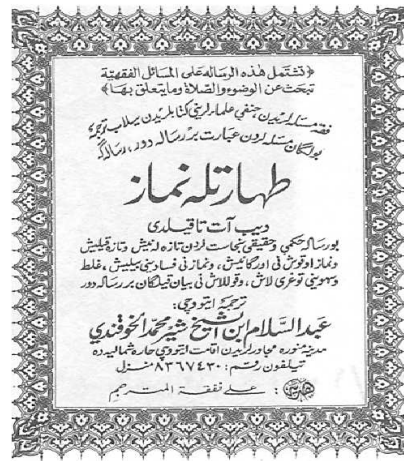 ﴿ تشتمل هذه الرساله على المسائل الفقهية
تبحث عن الوضوء والصلاة وما يتعلق بها ﴾
فقه مسئله لريدن، حنفي علماء لرينى كتابلريدن يىلاب ترجمه
بولگان مسئله لردن عبارت بر رساله دور، رساله گه
طهارتله نماز
ديب آت تاقيلدى
بو رساله حكمي وحقيقي نجاست لردن تازه لنيش وتازه قيليش
ونماز اوقوش نى اورگانيش، ونماز نى فساد سنى بيليش، غلط
وسهوينى توغرى لاش، وقوللاش نى بيان قيلگان بر رساله دور
ترجمۀ ايتووچى:
عبد السلام ابن الشيخ شير محمد الخوقندي
مدينۀ منوره مجاور لريدن اقامت ايتووچى حاره شماليه ده
تيلفون رقم: ٨٣٦٧٤٣٠ منزل
: على نفقة المترجم